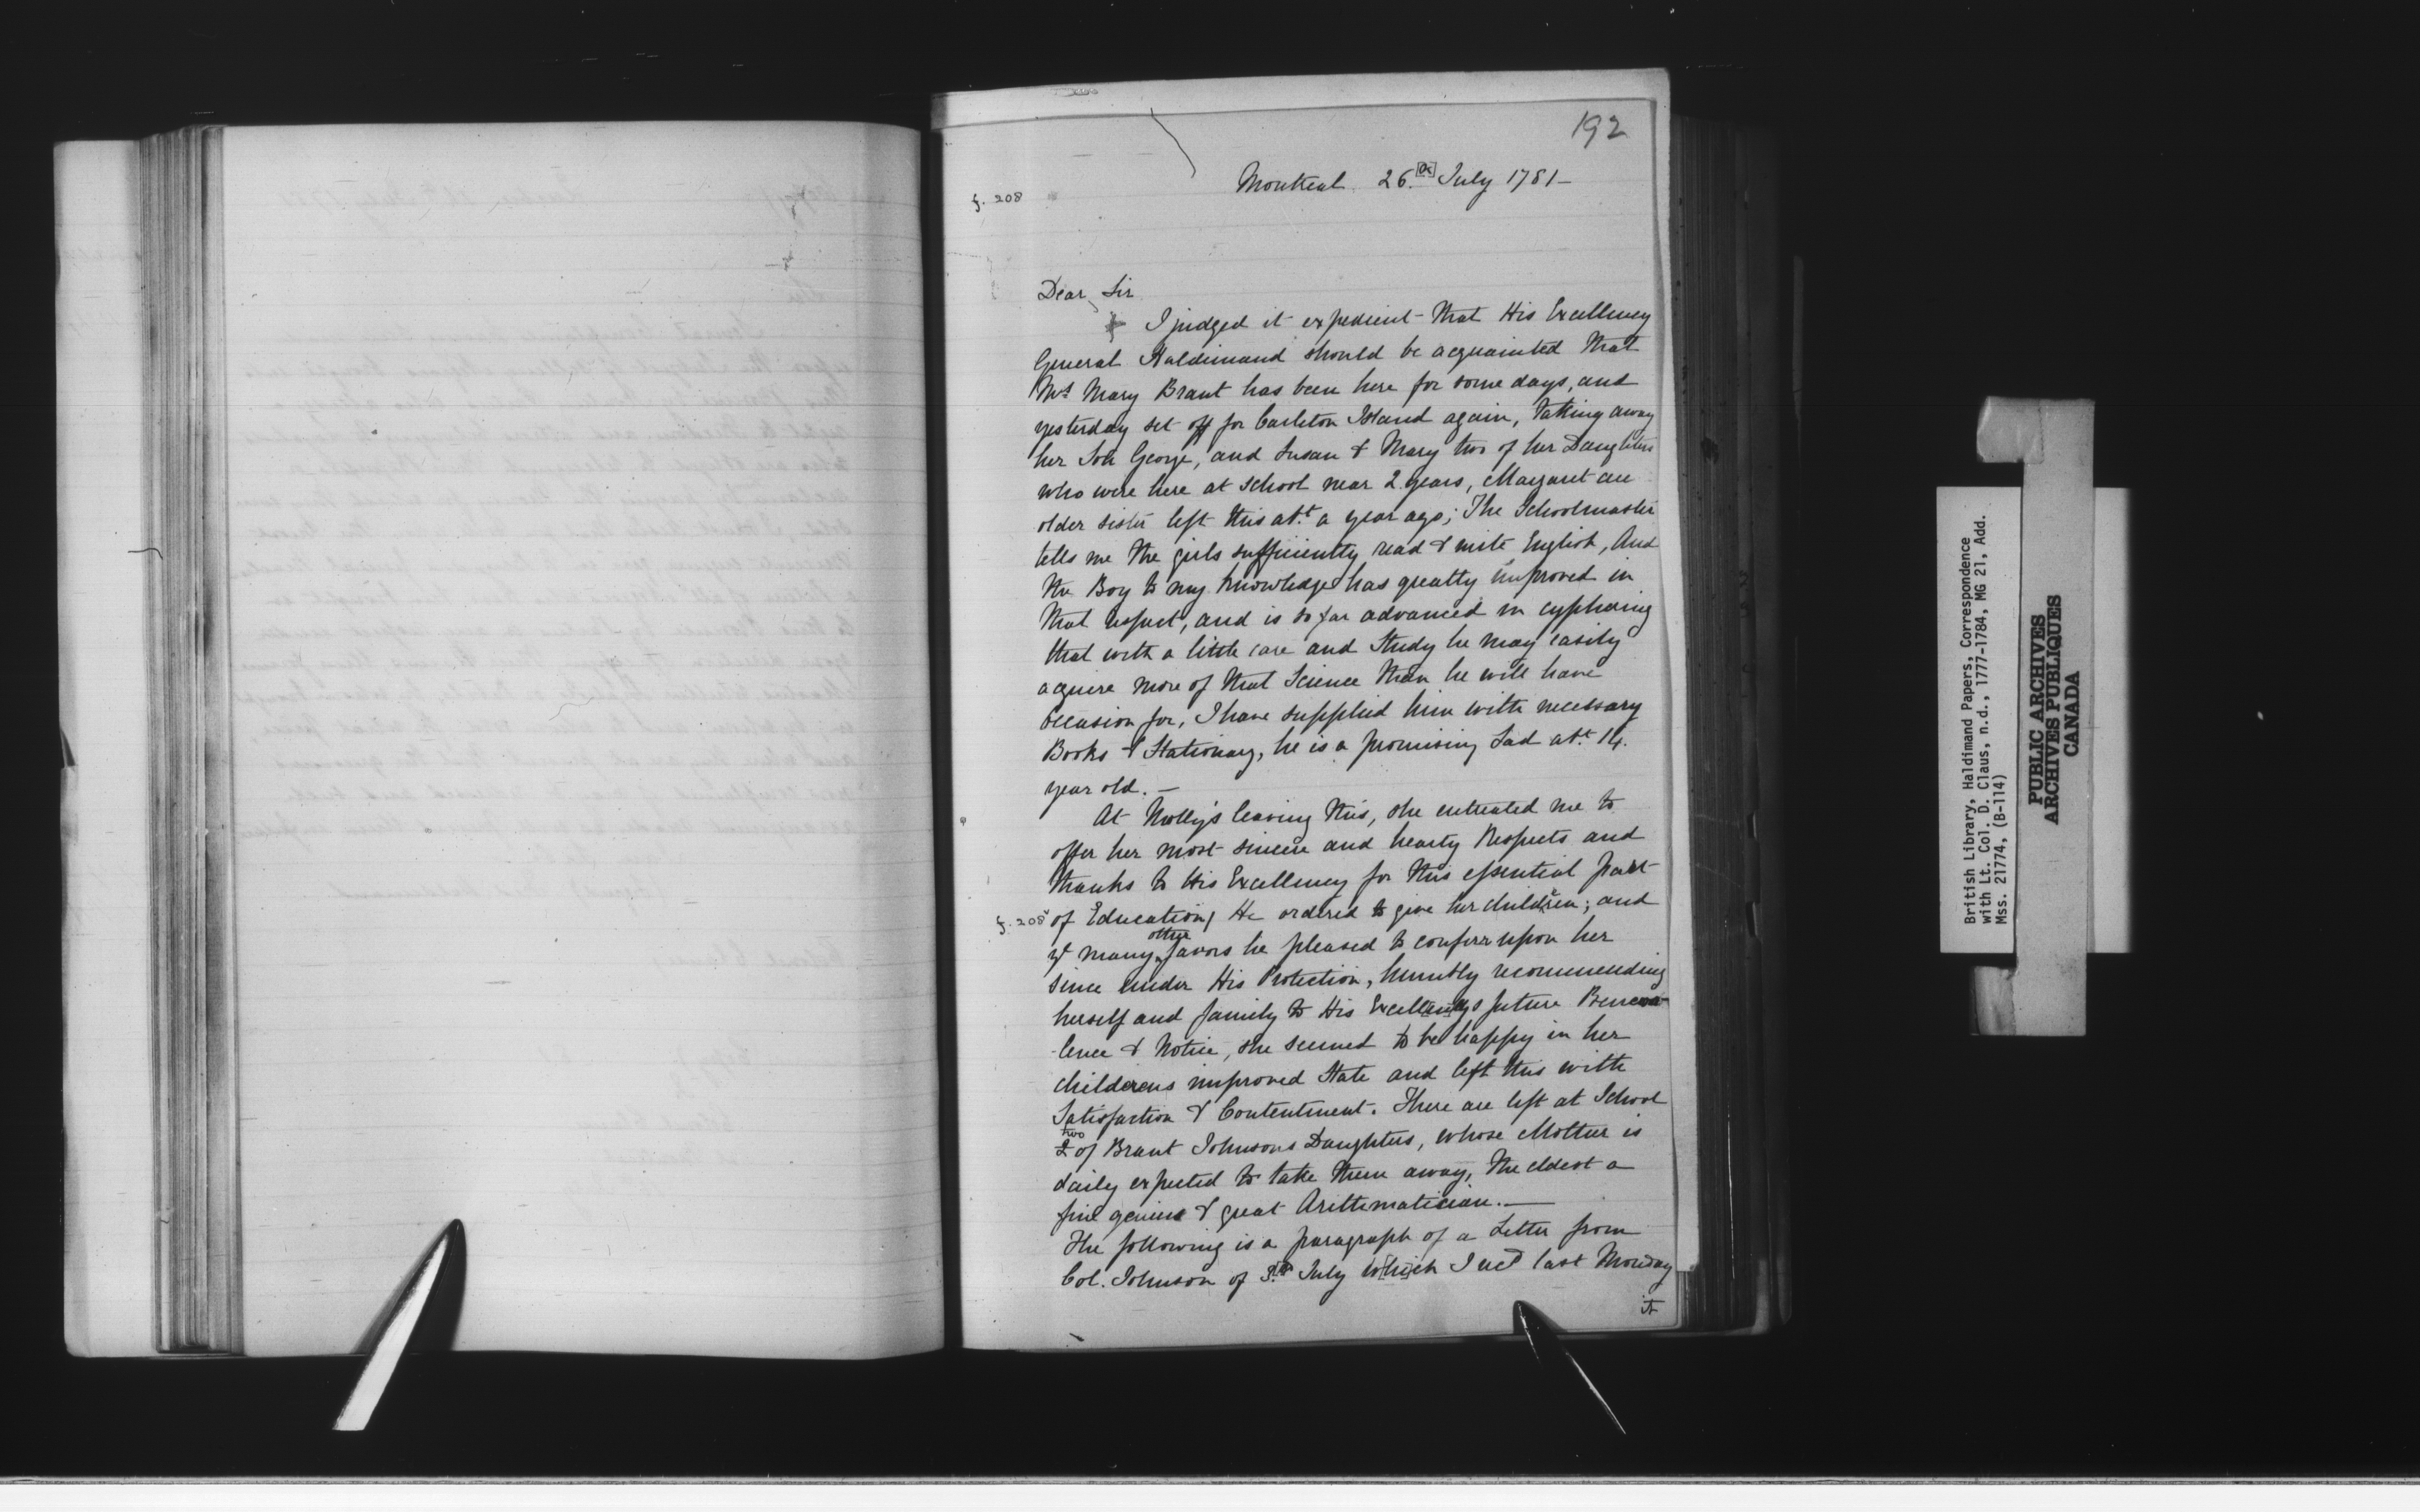 192
Montreal 26.th July 1781-
f. 208
Dear Sir
I judged it expedient that His Excellency
General Haldimand should be acquainted that
Mrs Mary Brant has been here for some days, and
yesterday set off for Carleton Island again, taking away
her Son George, and Susan & Mary two of her Daughters
who were here at School near 2 years, Margaret an
older sister left this abt. a year ago; The Schoolmaster
tells me the girls sufficiently read & write English, And
the Boy to my knowledge has greatly improved in
that respect, and is so far advanced in cyphering
that with a little care and Study he may easily
acquire more of that Science than he will have
occasion for, I have supplied him with necessary
Books & Stationary, he is a promising Lad abt. 14.
year old. —
At Molly's leaving this, she entreated me to
offer her most sincere and hearty Respects and
thanks to His Excellency for this essential part
f. 208v of Education, He ordered to give her children; and
yt many other favors he pleased to conferr upon her
since under His Protection, humbly recommending
herself and family to His Excellencys future Benevo-
-lence & Notice, she seemed to be happy in her
childerens improved State and left this with
Satisfaction & Contentment. There are left at School
two
2 of Brant Johnsons Daughters, whose Mother is
daily expected to take them away, the eldest a
fine genius & great Arithmatician. —
The following is a paragraph of a Letter from
Col. Johnson of 3.d July which I recd last Monday
British Library, Haldimand Papers, Correspondence
with Lt. Col. D. Claus, n.d., 1777-1784, MG 21, Add.
Mss. 21774, (B-114)
PUBLIC ARCHIVES
ARCHIVES PUBLIQUES
CANADA